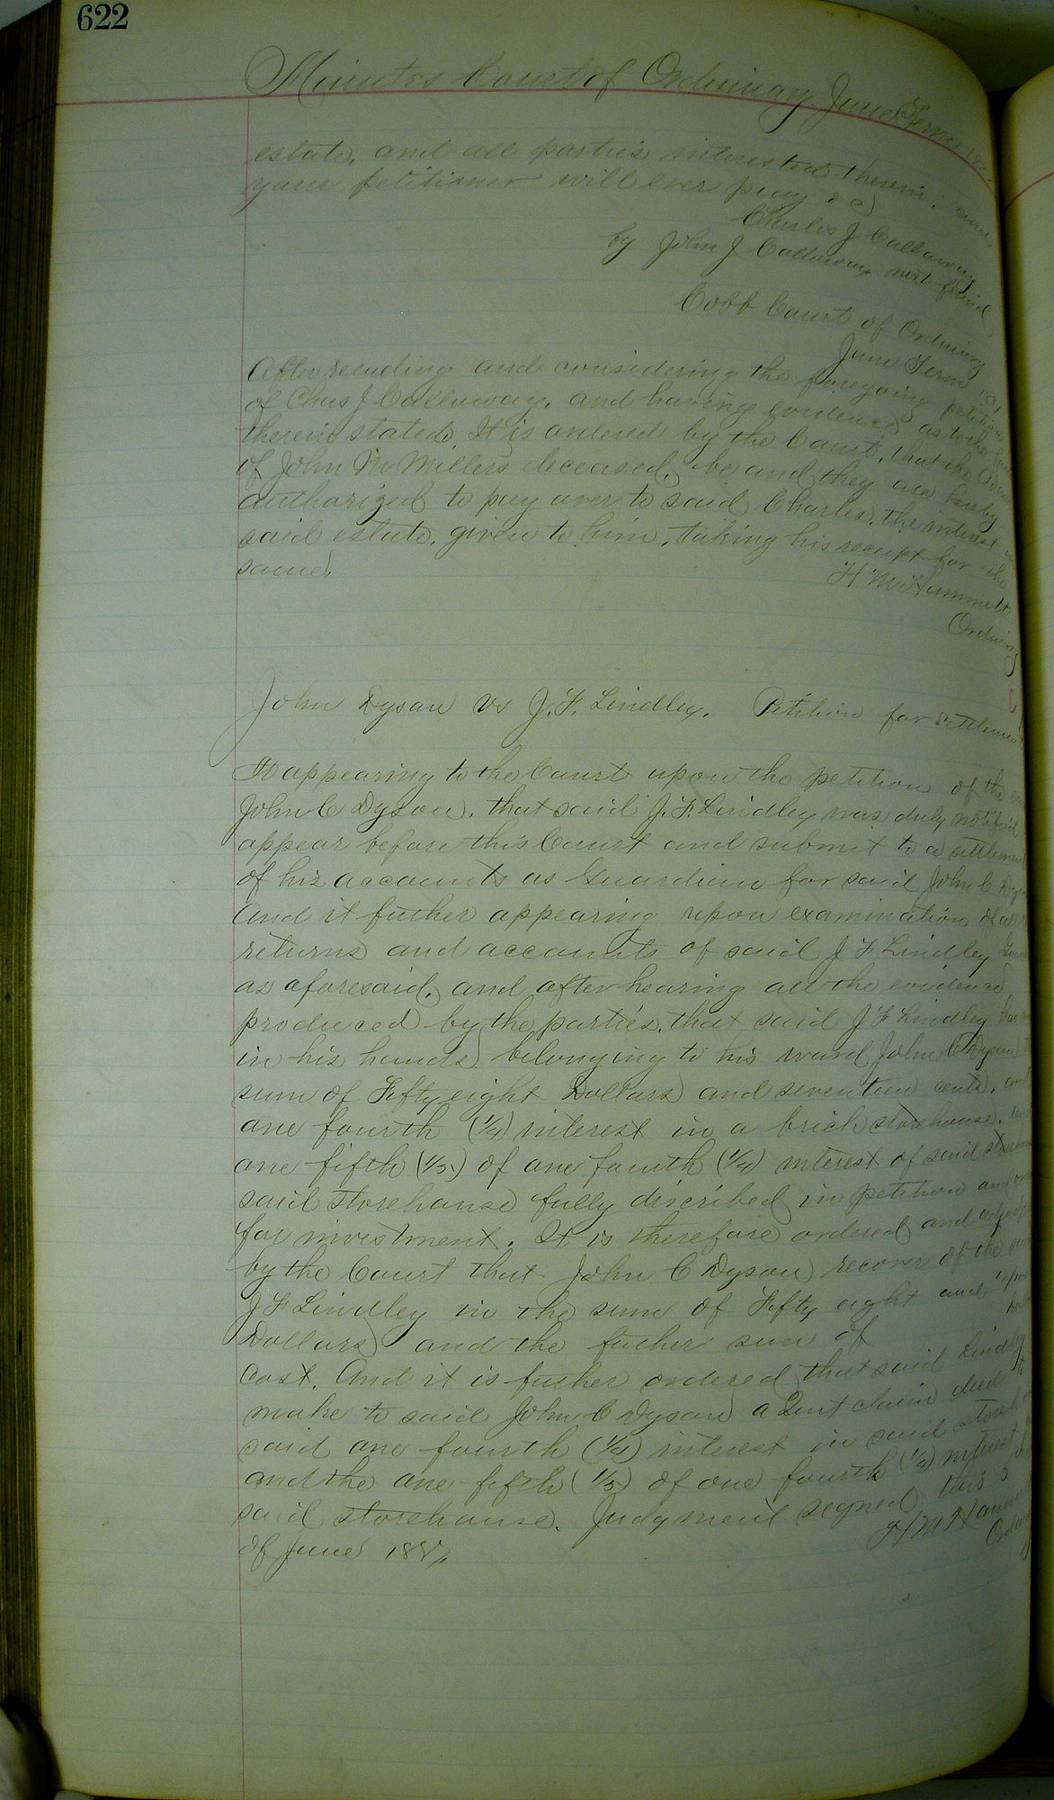 622
Minutes Court of Ordinary June Term
estate, and all parties interested therein, and
your petitioner will ever pray &c
Charles J Callaway
by John J Callaway next friend
Cobb Court of Ordinary
June Term
After reading and considering the foregoing petition
of Chas J Callaway, and having evidence as to the
therein stated, It is ordered by the Court, that the
of John McMillers deceased, be and they are hereby
authorized to pay over to said Charles, the interest in
said estate, given to him, taking his receipt for the
same,
H M Hammett
Ordinary
John Dyson vs J. F. Lindley. Petition for settlement
It appearing to the Court upon the petition of the
John C Dyson, that said J. F. Lindley was duly notified
appear before this Court and submit to a settlement
of his accounts as Guardian for said John C Dyson
And it futher appearing upon examination of
returns and accounts of said J F Lindley
as aforesaid, and after hearing all the evidence
produced by the parties, that said J F Lindley has
in his hands belonging to his ward John C Dyson
sum of Fifty eight Dollars and seventeen cents, and
one fourth (1/4) interest in a brick storehouse, and
one fifth (1/5) of one fourth (1/4) interest of said
said storehouse fully discribed in petition and
for investment. It is therefore ordered and
by the Court that John C Dyson recover of the
J F Lindley in the sum of Fifty eight and
Dollars and the futher sum of
Cost. And it is futher ordered that said Lindley
make to said John C Dyson a Quit claim deed
said one fourth (1/4) interest in said
and the one fifth (1/5) of one fourth (1/4) interest
said storehouse. Judgment signed this
of June
H M Hammett